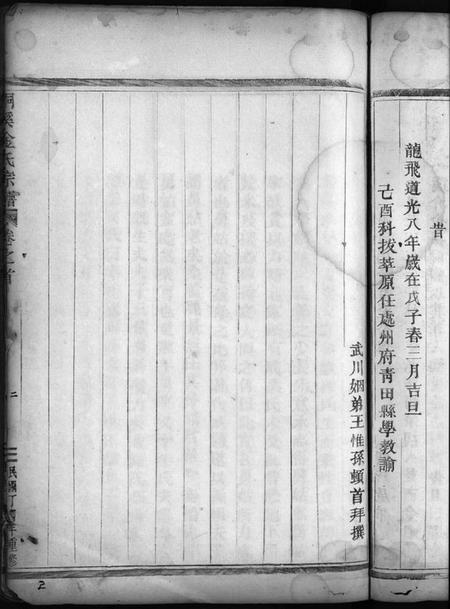 旹
龍飛道光八年歲在戊子春三月吉旦
己酉科拔萃原任處州府青田縣學教諭
武川姻弟王惟孫頓首拜撰
桐溪金氏宗譜
卷之首
二
民國丁酉年重修
2